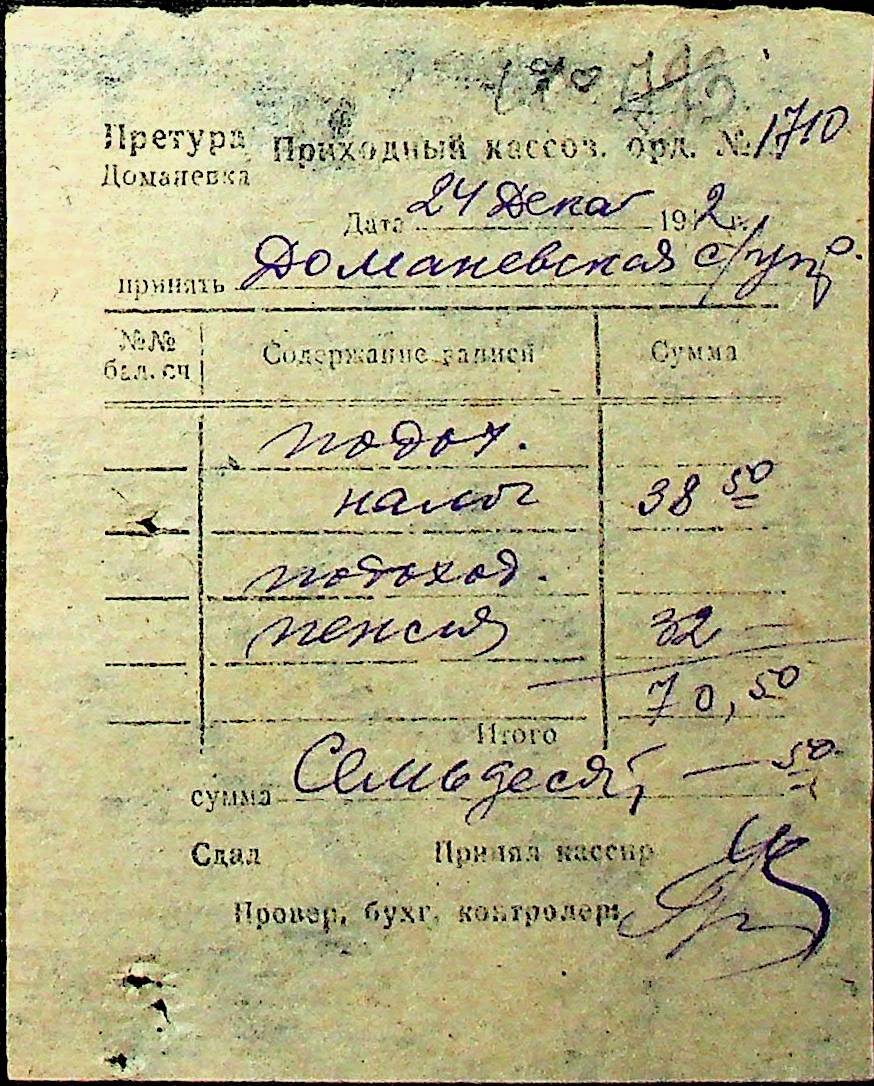 170 776
Претура Приходный кассов. орд. № 1710
Доманевка
Дата 24 Дека 1942 г.
принять Доманевская с/упр.
№№ бал. сч Содержание записей Сумма
подох.
налог 38 50
подоход.
пенсия 32 —
70,50
Итого
сумма Семьдесят, — 50
Сдал Принял кассир
Провер. бухг. контролер